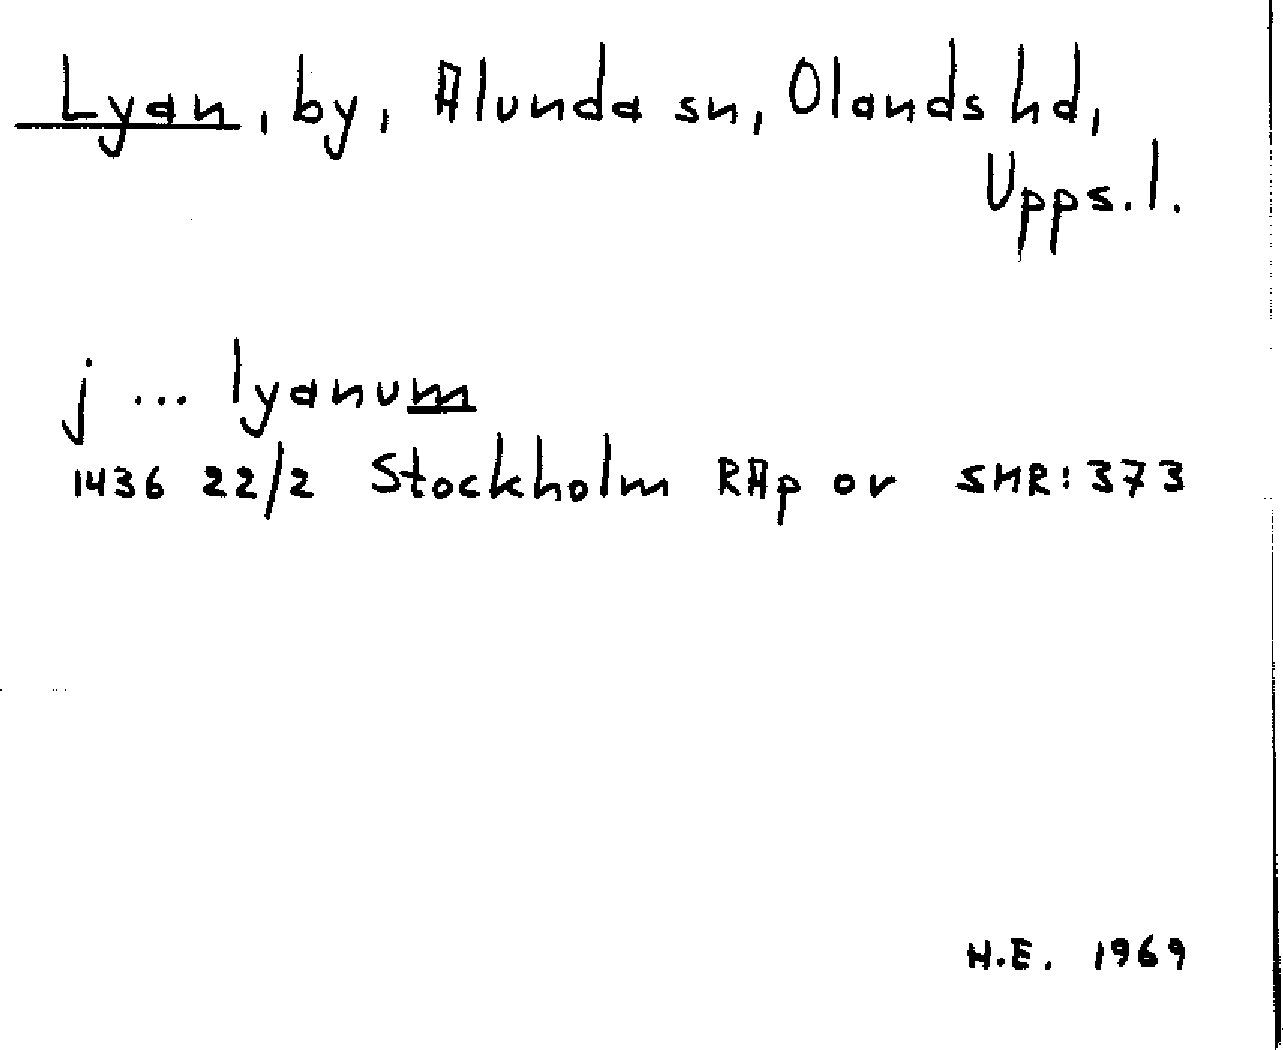 Lyan, by, Alunda sn, Olands hd,
Upps. l.
j ... lyanum
1436 22/2 Stockholm RAp or SMR: 373
H.E. 1969